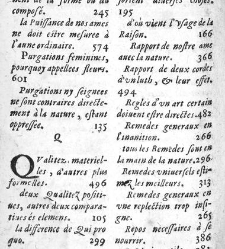 ment de la forme ou du
compé. 245
la Puissance de nos ames
ne doit estre mesurée à
l'aune ordinaire. 574
Purgations feminines,
pourquoy appellees fleurs.
601
Purgations ny seignees
ne sont contraires directe-
ment à la nature, estant
oppressée. 135
Q
Qvalitez materiel-
les, d'autres plus
formelles. 496
deux Qualitez positi-
ues, autres deux compara-
tiues és elemens. 105
la difference de Qui pro
quo. 299
195
d'où vient l'vsage de la
Raison. 166
Rapport de nostre ame
auec la nature. 366
Rapport de deux cordes
d'vn luth, & leur effet.
494
Regles d'vn art certain
doiuent estre directes. 482
Remedes generaux en
l'inanition. 266
tous les Remedes sont en
la main de la nature. 296
Remedes vniuersels esti-
mez les meilleurs. 313
Remedes generaux en
vne repletion trop insi-
gne. 265
Repos necessaire à se
nourrir. 386